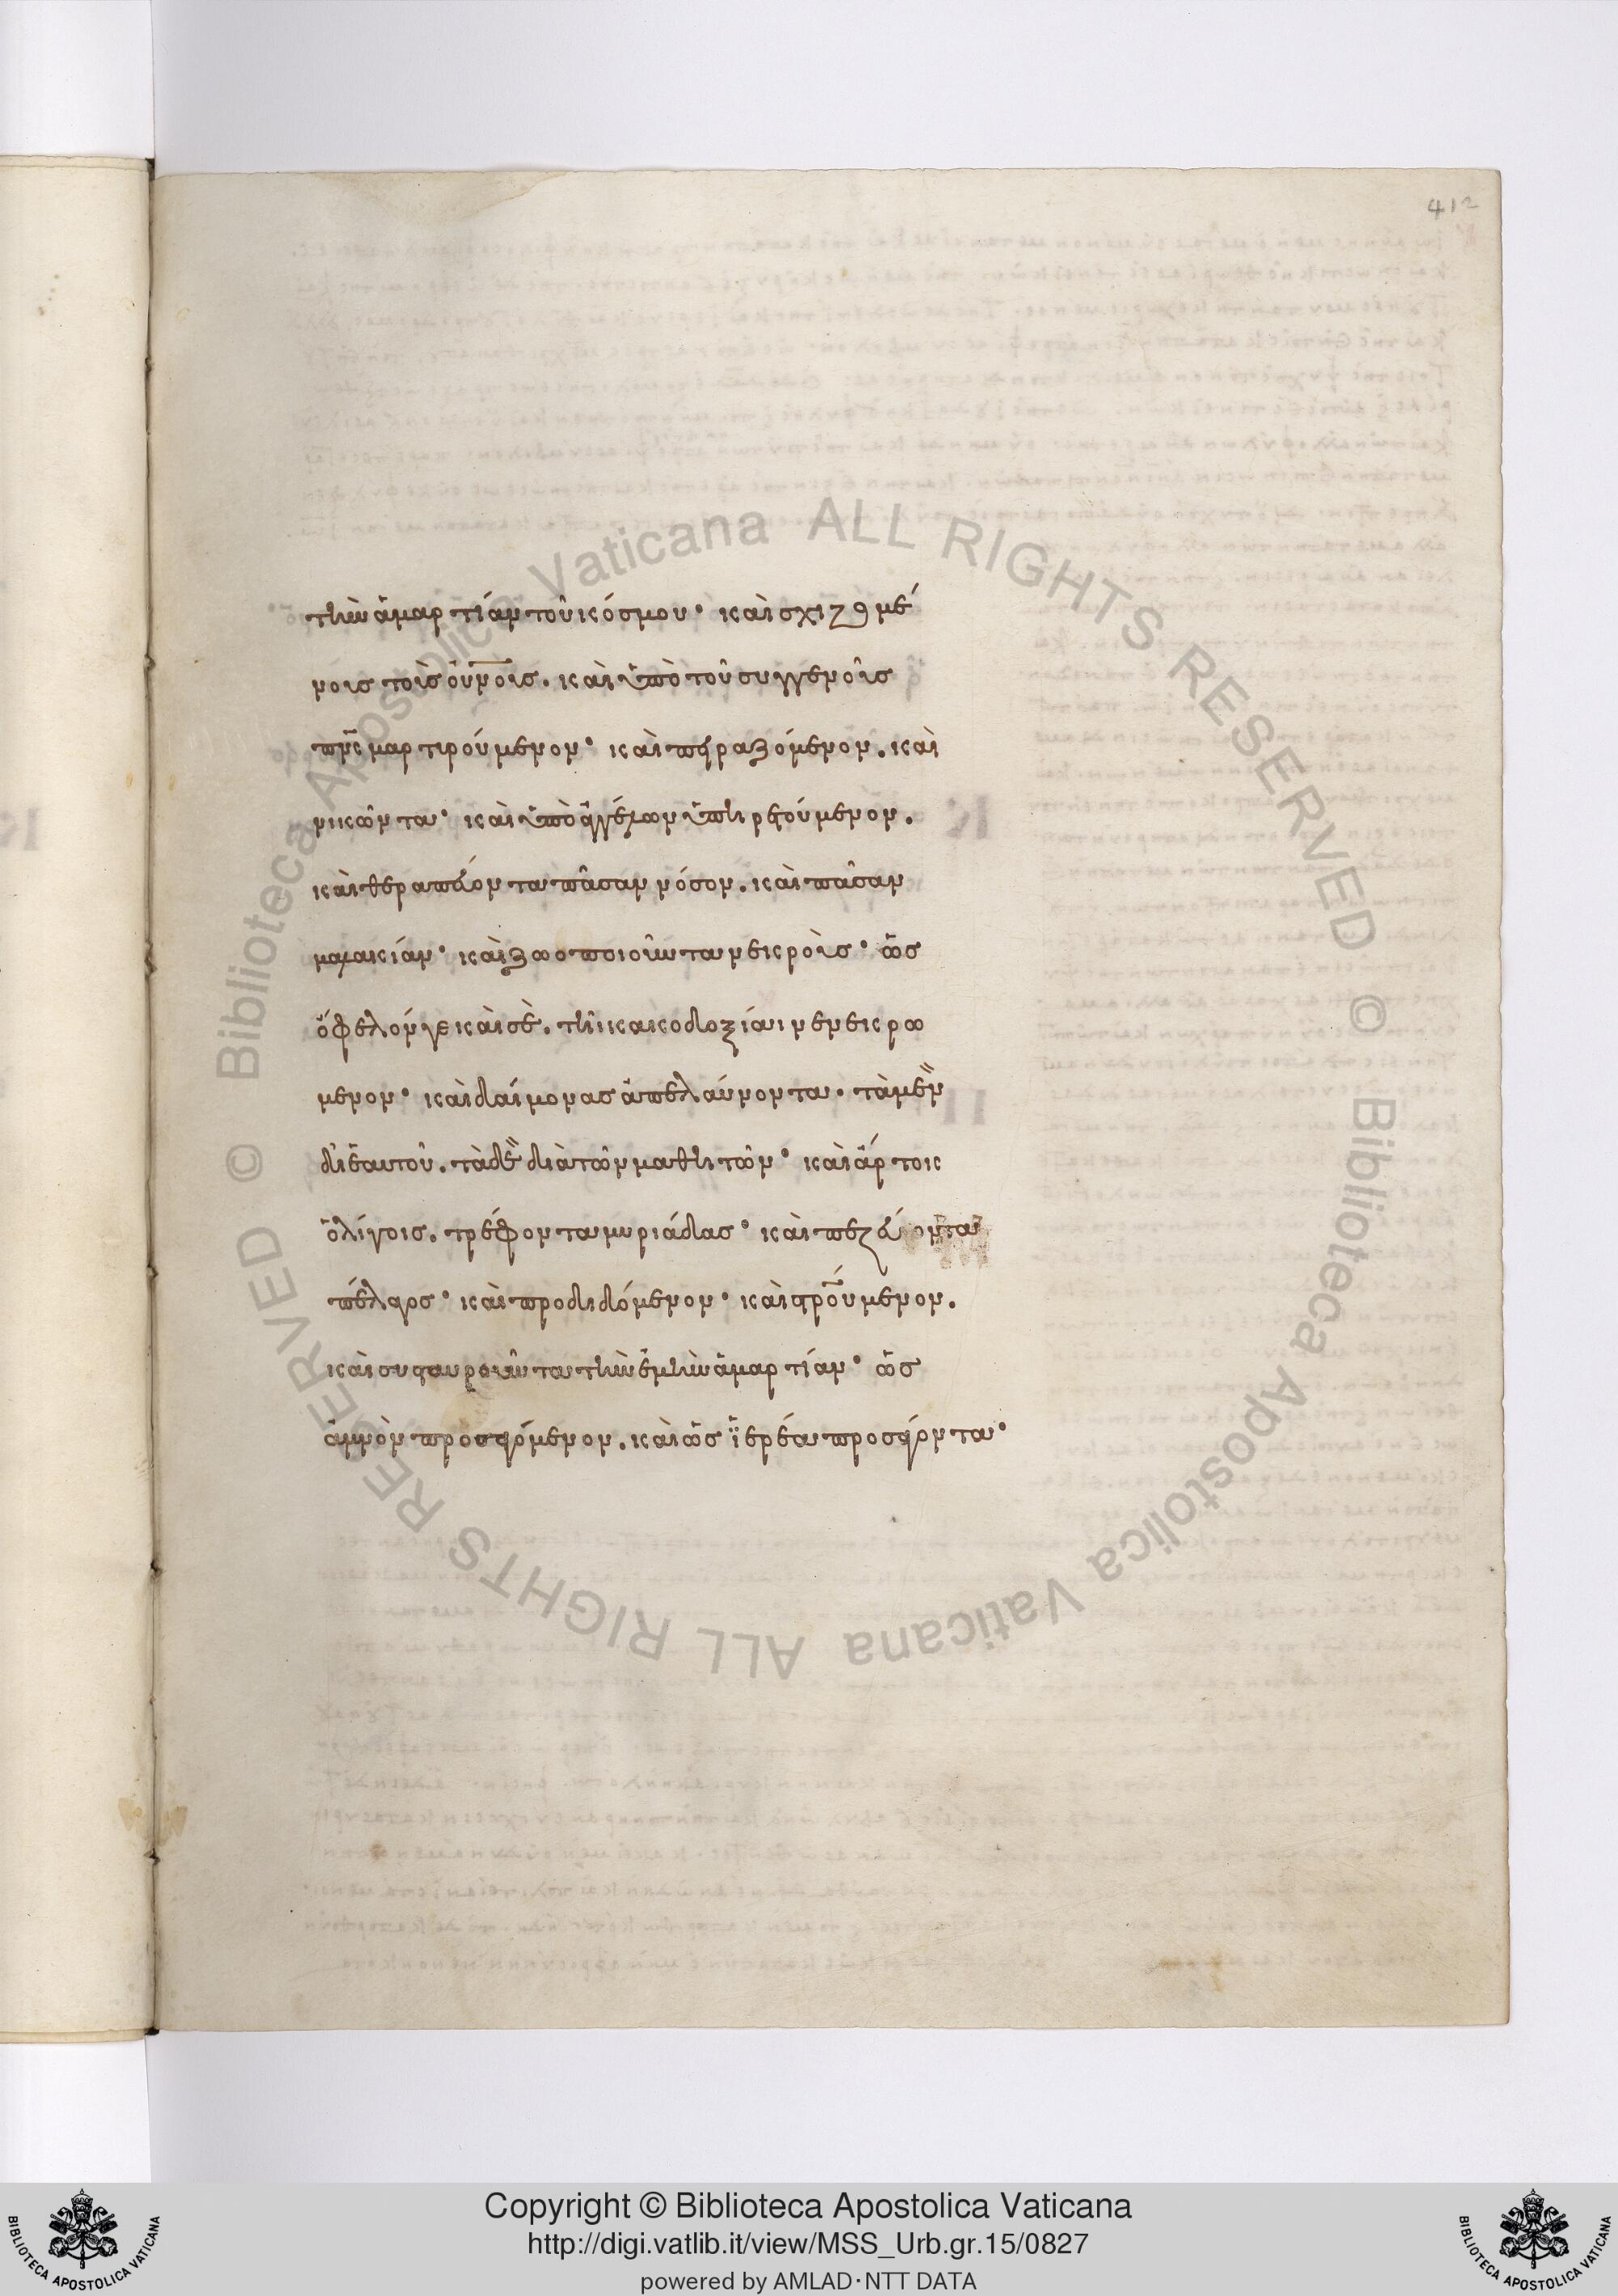 412
τὴν ἁμαρτίαν τοῦ κόσμου· καὶ σχιζομέ
νοις τοῖς οὐνοῖς. καὶ ὑπὸ τοῦ συγγενοῦς
πνς μαρτυρούμενον· καὶ πειραζόμενον. καὶ
νικῶντα· καὶ ὑπὸ ἀγγέλων ὑπηρετούμενον.
καὶ θεραπεύοντα πᾶσαν νόσον. καὶ πᾶσαν
μαλακίαν· καὶ ζωοποιοῦντα νεκροὺς· ὡς
ὄφελόν γε καὶ σὲ. τῆι κακοδοξίαι νενεκρω
μένον· καὶ δαίμονας ἀπελαύνοντα. τὰ μὲν
δι' ἑαυτοῦ. τὰ δὲ διὰ τῶν μαθητῶν· καὶ ἄρτοις
ὀλίγοις. τρέφοντα μυριάδας· καὶ πεζεύοντα
πέλαγος· καὶ προδιδόμενον· καὶ στρούμενον.
καὶ συσταυροῦντα τὴν ἐμὴν ἁμαρτίαν· ὡς
ἀμνὸν προσαγόμενον. καὶ ὡς ἱερέα προσάγοντα·
Copyright © Biblioteca Apostolica Vaticana
http://digi.vatlib.it/view/MSS_Urb.gr.15/0827
powered by AMLAD·NTT DATA
© Biblioteca Apostolica Vaticana ALL RIGHTS RESERVED © Biblioteca Apostolica Vaticana ALL RIGHTS RESERVED
BIBLIOTECA APOSTOLICA VATICANA
BIBLIOTECA APOSTOLICA VATICANA